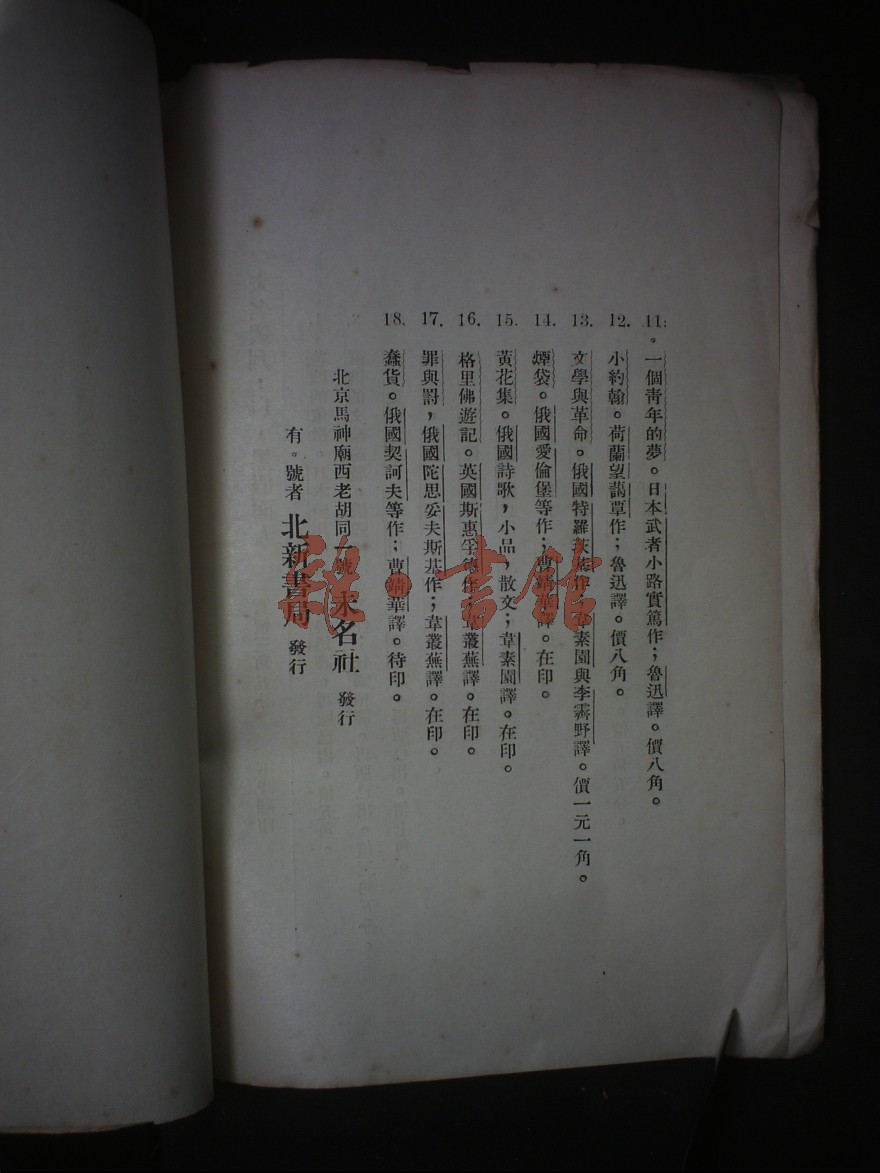 11. 一個青年的夢。日本武者小路實篤作；魯迅譯。價八角。
12. 小約翰。荷蘭望藹覃作；魯迅譯。價八角。
13. 文學與革命。俄國特羅作；韋素園與李霽野譯。價一元一角。
14. 煙袋。俄國愛倫堡等作；曹靖在印。
15. 黃花集。俄國詩歌，小品，散文；韋素園譯。在印。
16. 格里佛遊記。英國斯惠孚作；韋叢蕪譯。在印。
17. 罪與罰，俄國陀思妥夫斯基作；韋叢蕪譯。在印。
18. 蠢貨。俄國契訶夫等作；曹靖華譯。待印。
北京馬神廟西老胡同一號 未名社 發行
有。號者 北新書局 發行
雜·書館